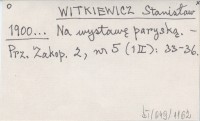 WITKIEWICZ Stanisław
1900... Na wystawę paryską. –
Prz. Zakop. 2, nr 5 (1 II): 35-36.